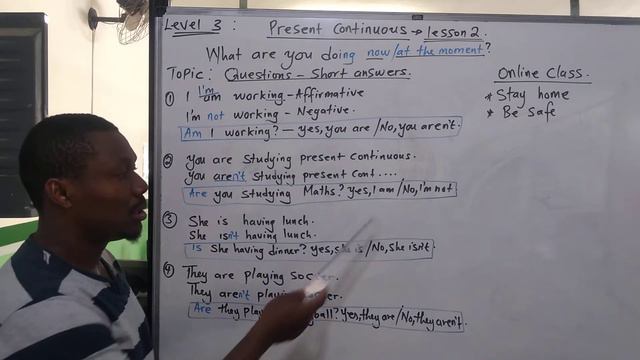 Level 3 : Present Continuous → lesson 2.
What are you doing now/at the moment?
Topic: Questions - Short answers.
① I am working - Affirmative
I'm
I'm not working - Negative.
Am I working? - yes, you are /No, you aren't.
② you are studying present continuous.
you aren't studying present cont....
Are you studying Maths? yes, I am /No, I'm not
③ She is having lunch.
She isn't having lunch.
Is She having dinner? yes, she is /No, She isn't.
④ They are playing soccer.
They aren't playing
Are they playing ball? Yes, they are /No, they aren't.
Online Class.
* Stay home
* Be Safe